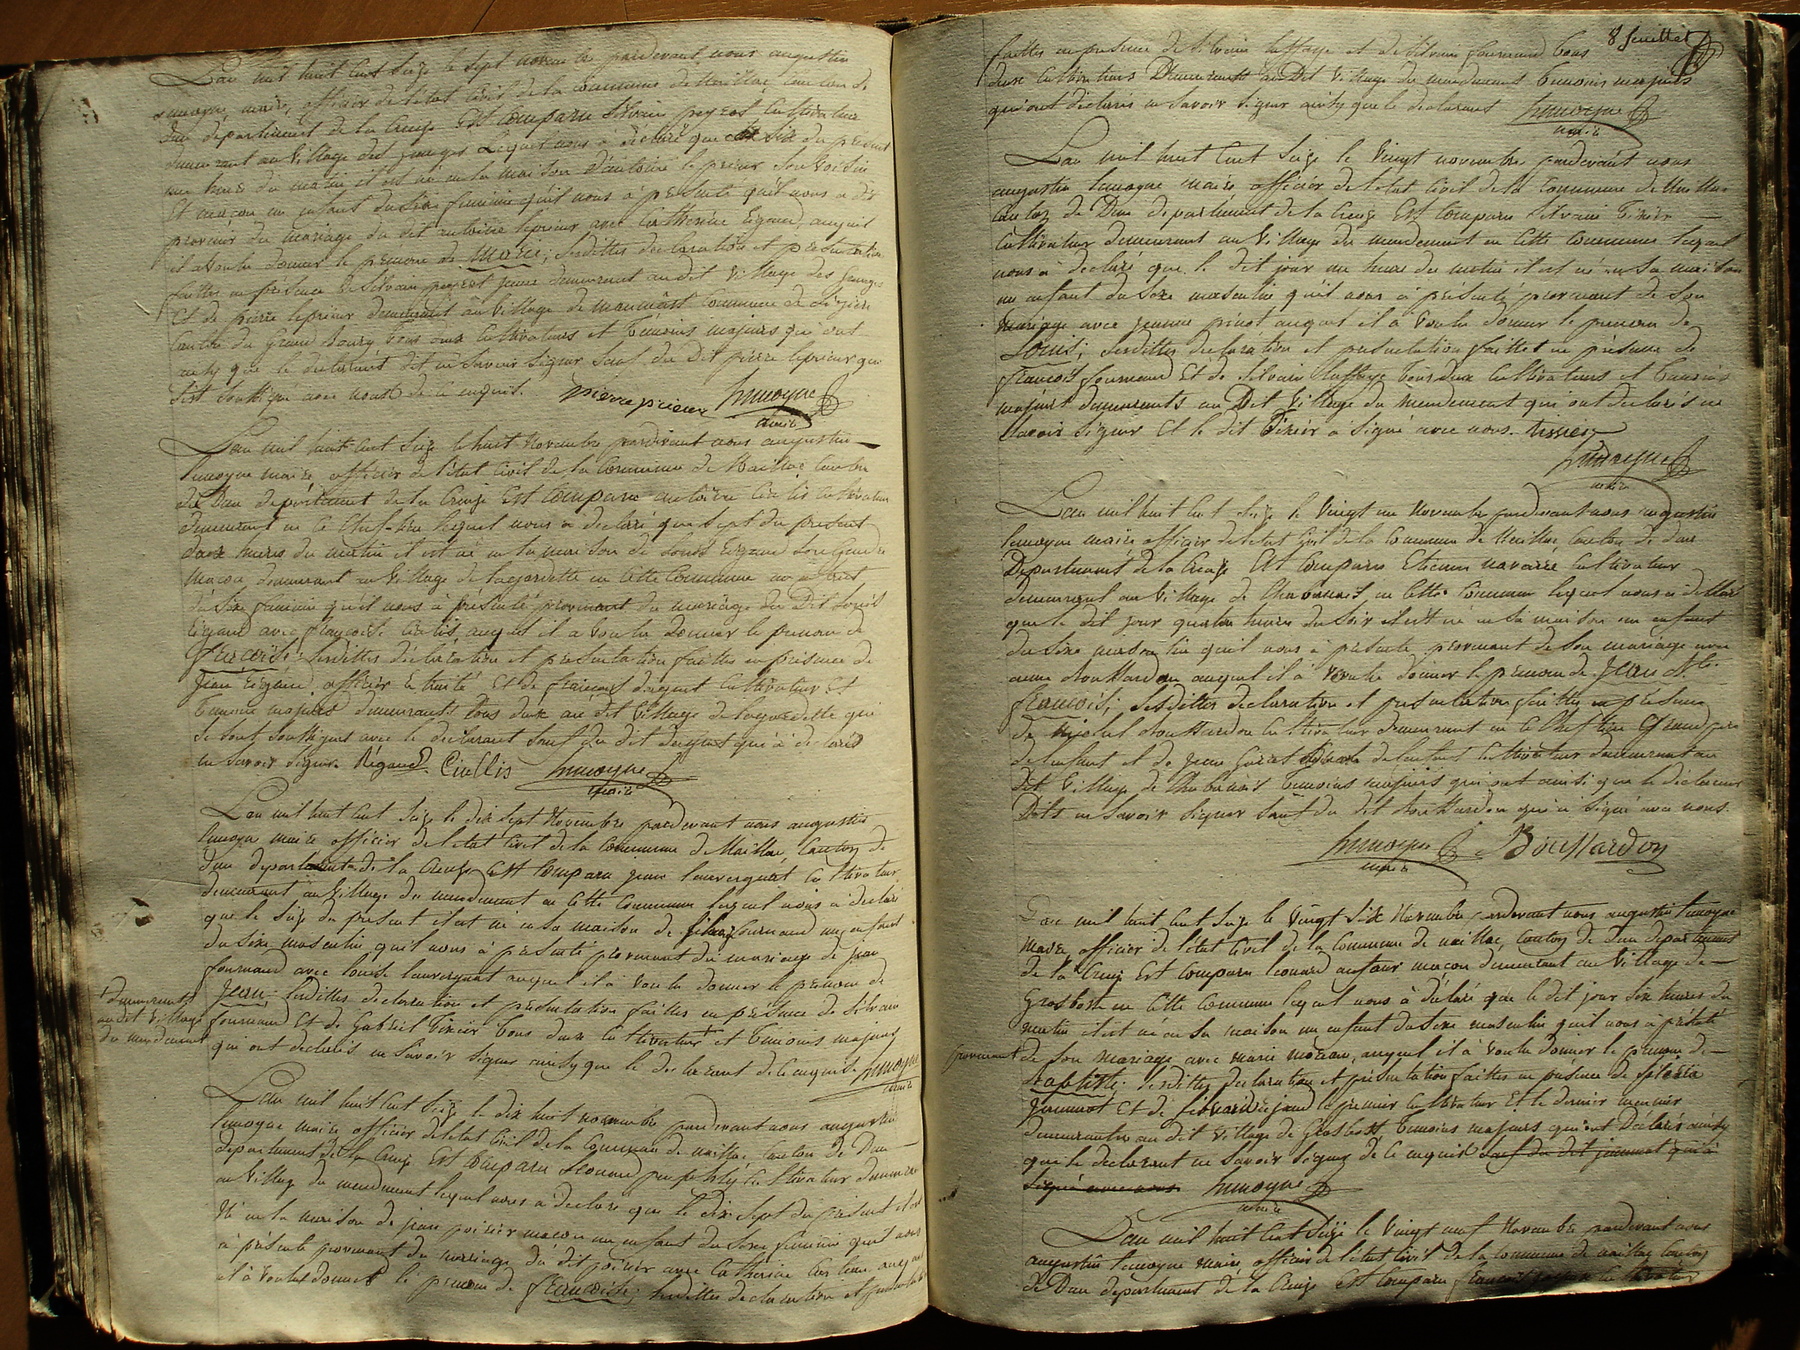 L'an mil huit cent seize le sept novembre pardevant nous augustin
Lemoyne maire, officier de l'état civil de la commune de Maillac, canton de
Dun département de la Creuze Est Comparu Silvain peyrot, Cultivateur
demeurant au Village des jouanges Lequel nous a déclaré que le six du présent
une heure du matin il est né en la maison d'antoine leprieur son voisin
Et maçon un enfant du sexe feminin qu'il nous à présenté qu'il nous a dit
provenir du mariage du dit antoine leprieur avec Catherine Rigaud, auquel
il a Voulu donner le prénom de Marie; sesdittes declaration et présentation
faittes en présence de Silvain peyrot jeune demeurant audit Village des jouanges
Et de pierre leprieur demeurant au Village de commune de
Canton du Grand Bourg Tous deux Cultivateurs et temoins majeurs qui ont
ainsy que le déclarant dit ne savoir signer sauf du Dit pierre leprieur qui
s'est soussigné avec nous de ce enquis. pierre prieur Lemoyne
maire
L'an mil huit cent seize le huit Novembre pardevant nous augustin
Lemoyne maire, officier de l'état Civil de la Commune de Maillac Canton
de Dun département de la Creuze Est Comparu antoine Cialis cultivateur
demeurant en ce Chef-lieu lequel nous a declaré que sept du présent
deux heures du matin il est né en la maison de Louis Rigaud son Gendre
Maçon demeurant au Village de Lagoudette en cette Commune un enfant
du sexe feminin qu'il nous à présenté provenant du mariage du Dit Louis
Rigaud avec françoise Cialis, auquel il a voulu donner le prénom de
françoise; sesdittes déclaration et présentation faittes en présence de
Jean Rigaud, officier Retraité Et de françois daguet cultivateur Et
temoins majeurs demeurants tous deux au dit Village de Lagoudette qui
se sont soussignés avec le déclarant sauf du dit daguet qui à déclaré
ne savoir signer. Rigaud. Ciallis Lemoyne
maire
L'an mil huit cent seize le dix sept Novembre pardevant nous augustin
Lemoyne maire officier de letat Civil de la Commune de Maillac, Canton de
dun departement de la Creuze Est Comparu jean Lauvergnat Cultivateur
demeurant au Village du mondement en Cette Commune lequel nous à declaré
que le seize du présent il est né en sa maison de fournaud un enfant
du sexe masculin qu'il nous à présenté provenant du mariage de Jean
fournaud avec louise lauvergnat auquel il à voulu donner le prénom de
Jean; sesdittes declaration et présentation faittes en présence de Silvain
1 demeurants
au dit Village
du mondement
fournaud Et de Gabriel Tixier tous deux Cultivateurs et temoins majeurs
qui ont declarés ne Savoir Signer ainsy que le declarant de ce enquis. Lemoyne
maire
L'an mil huit cent seize le dix huit novembre pardevant nous augustin
Lemoyne maire officier de letat Civil de la Commune de maillac canton de Dun
departement de la Creuze Est Comparu Léonard Cultivateur demeurant
au Village du mondement lequel nous a déclaré que le dix sept du présent il est
né en la maison de jean poirier maçon un enfant du sexe feminin qu'il nous
à présenté provenant du mariage du dit poirier avec Catherine auquel
il à voulu donner le prénom de françoise; sesdittes declaration et présentation
8 feuillet
faittes en présence de Silvain laffaye et de Silvain fournaud tous
deux cultivateurs Demeurants au Dit Village du mondement temoins majeurs
qui ont déclarés ne savoir signer ainsy que le declarant Lemoyne
maire
L'an mil huit cent seize le vingt novembre, pardevant nous
augustin Lemoyne maire officier de letat civil de la Commune de Maillac
canton de Dun departement de la Creuze Est Comparu Silvain Tixier
Cultivateur demeurant au Village du mondement en Cette Commune lequel
nous à déclaré que le dit jour une heure du matin il est né en sa maison
un enfant du sexe masculin qu'il nous à présenté provenant de son
mariage avec jeanne pinot auquel il à voulu donner le prenom de
Louis; sesdittes declaration et présentation faittes en présence de
françois fournaud Et de Silvain laffaye tous deux Cultivateurs et temoins
majeurs demeurants au Dit Village du mondement qui ont declarés ne
Savoir Signer Et le dit Tixier à Signé avec nous. tissier
Lemoyne
maire
L'an mil huit cent seize le vingt un Novembre pardevant nous augustin
Lemoyne maire officier de letat Civil de la Commune de Maillac Canton de dun
Departement de la Creuze Est Comparu Etienne navarre Cultivateur
demeurant au Village de Chabannes en Cette Commune lequel nous à déclaré
que le dit jour quatre heures du Soir il est né en sa maison un enfant
du sexe masculin qu'il nous à présenté provenant de son mariage avec
anne Bouttardon auquel il à voulu donner le prenom de Jean Bte
françois; sesdittes declaration et présentation faittes en présence
de Michel Bouttardon cultivateur demeurant en ce Chef lieu Grand père
de lenfant et de jean de lenfant Cultivateur demeurant au
dit Village de Chabannes temoins majeurs qui ont ainsi que le déclarant
Dits ne savoir signer sauf du dit Bouttardon qui à signé avec nous.
Lemoyne Bouttardon
maire
L'an mil huit cent seize le vingt Six Novembre pardevant nous augustin Lemoyne
maire, officier de letat Civil de la Commune de maillac, Canton de dun departement
de la Creuze Est Comparu Léonard maçon demeurant au Village de
Grosbost en Cette Commune lequel nous à déclaré que le dit jour Six heures du
matin il est né en sa maison un enfant du sexe masculin qu'il nous à présenté
provenant
de son mariage avec marie moreau, auquel il à voulu donner le prénom de
Baptiste. sesdittes declaration et présentation faittes en présence de Silvain
jouannot Et de le premier Cultivateur Et le dernier menuisier
demeurants au dit Village de Grosbost temoins majeurs qui ont Déclarés ainsy
que le declarant ne savoir signer de ce enquis sauf du dit jouannot qui à
signé avec nous. Lemoyne
maire
L'an mil huit cent seize le Vingt neuf Novembre pardevant nous
augustin Lemoyne maire, officier de l'état civil de la Commune de maillac Canton
de Dun département de la Creuze est Comparu françois Cultivateur